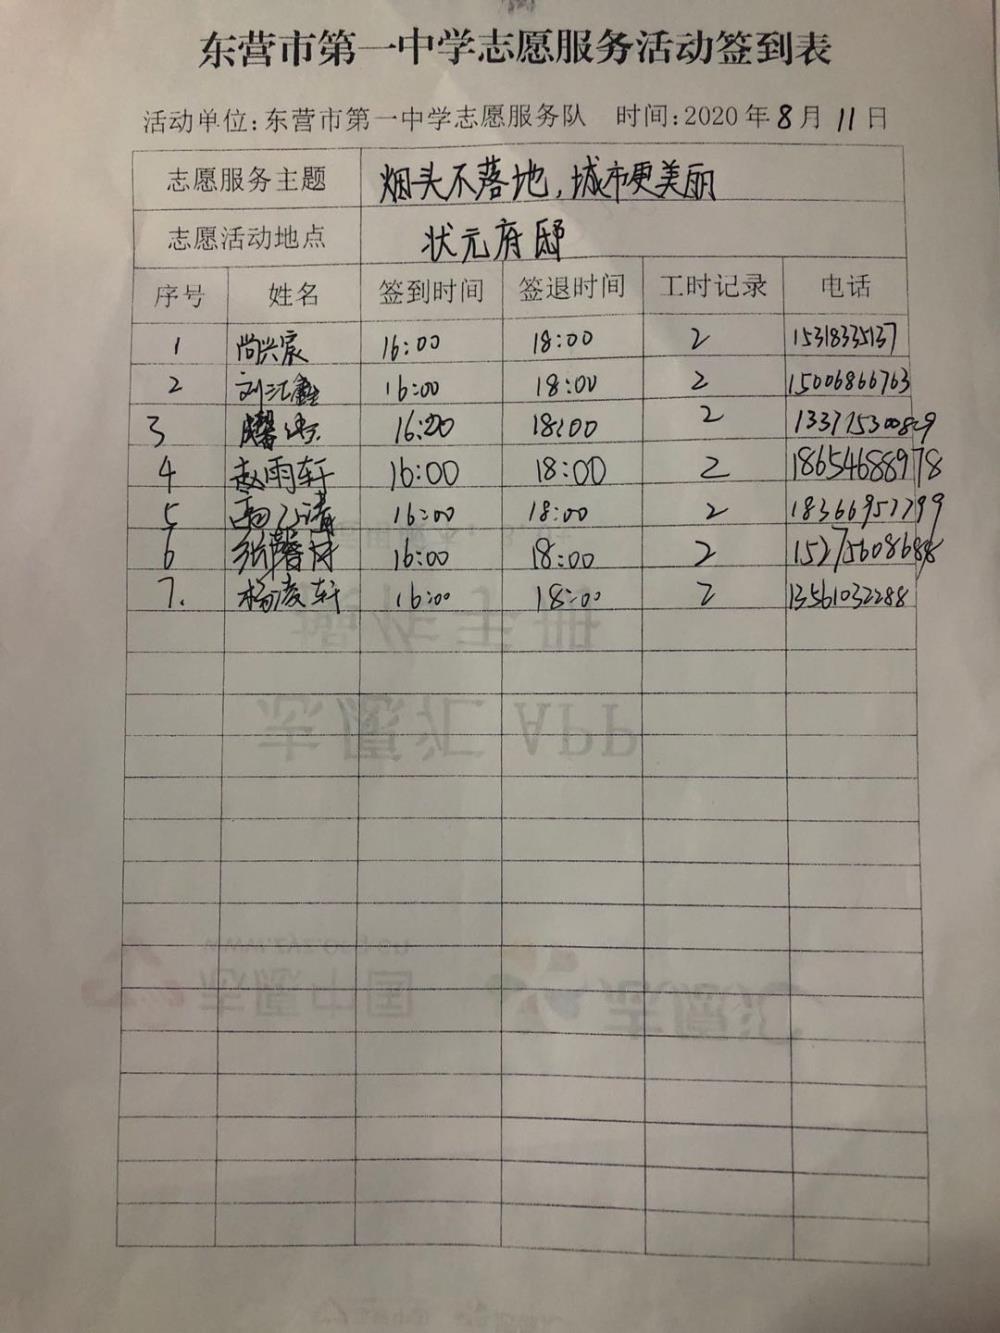 东营市第一中学志愿服务活动签到表
活动单位:东营市第一中学志愿服务队 时间:2020年8月11日
志愿服务主题 烟头不落地,城市更美丽
志愿活动地点 状元府邸
序号 姓名 签到时间 签退时间 工时记录 电话
1 尚兴宸 16:00 18:00 2 15318335137
2 刘江鑫 16:00 18:00 2 15006866763
3 16:00 18:00 2
4 赵雨轩 16:00 18:00 2 18654688978
5 16:00 18:00 2 18366957799
6 16:00 18:00 2 15275608688
7. 杨凌轩 16:00 18:00 2 13561032288
操作手册
志愿汇 APP
志愿中国
志愿汇